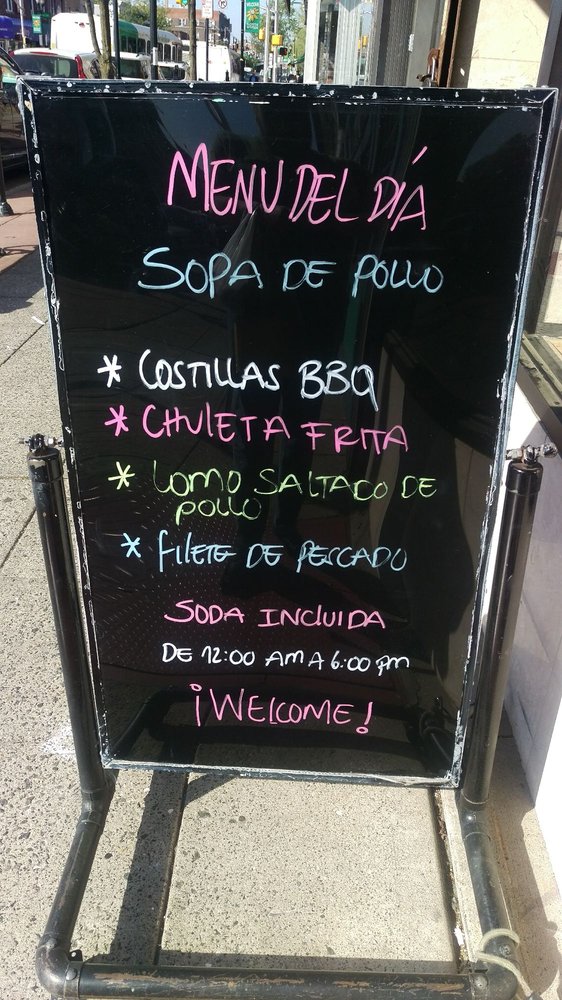 MENU DEL DÍA
SOPA DE POLLO
* COSTILLAS BBQ
* CHULETA FRITA
* LOMO SALTADO DE
POLLO
* FILETE DE PESCADO
SODA INCLUIDA
DE 12:00 AM A 6:00 pm
¡WELCOME!